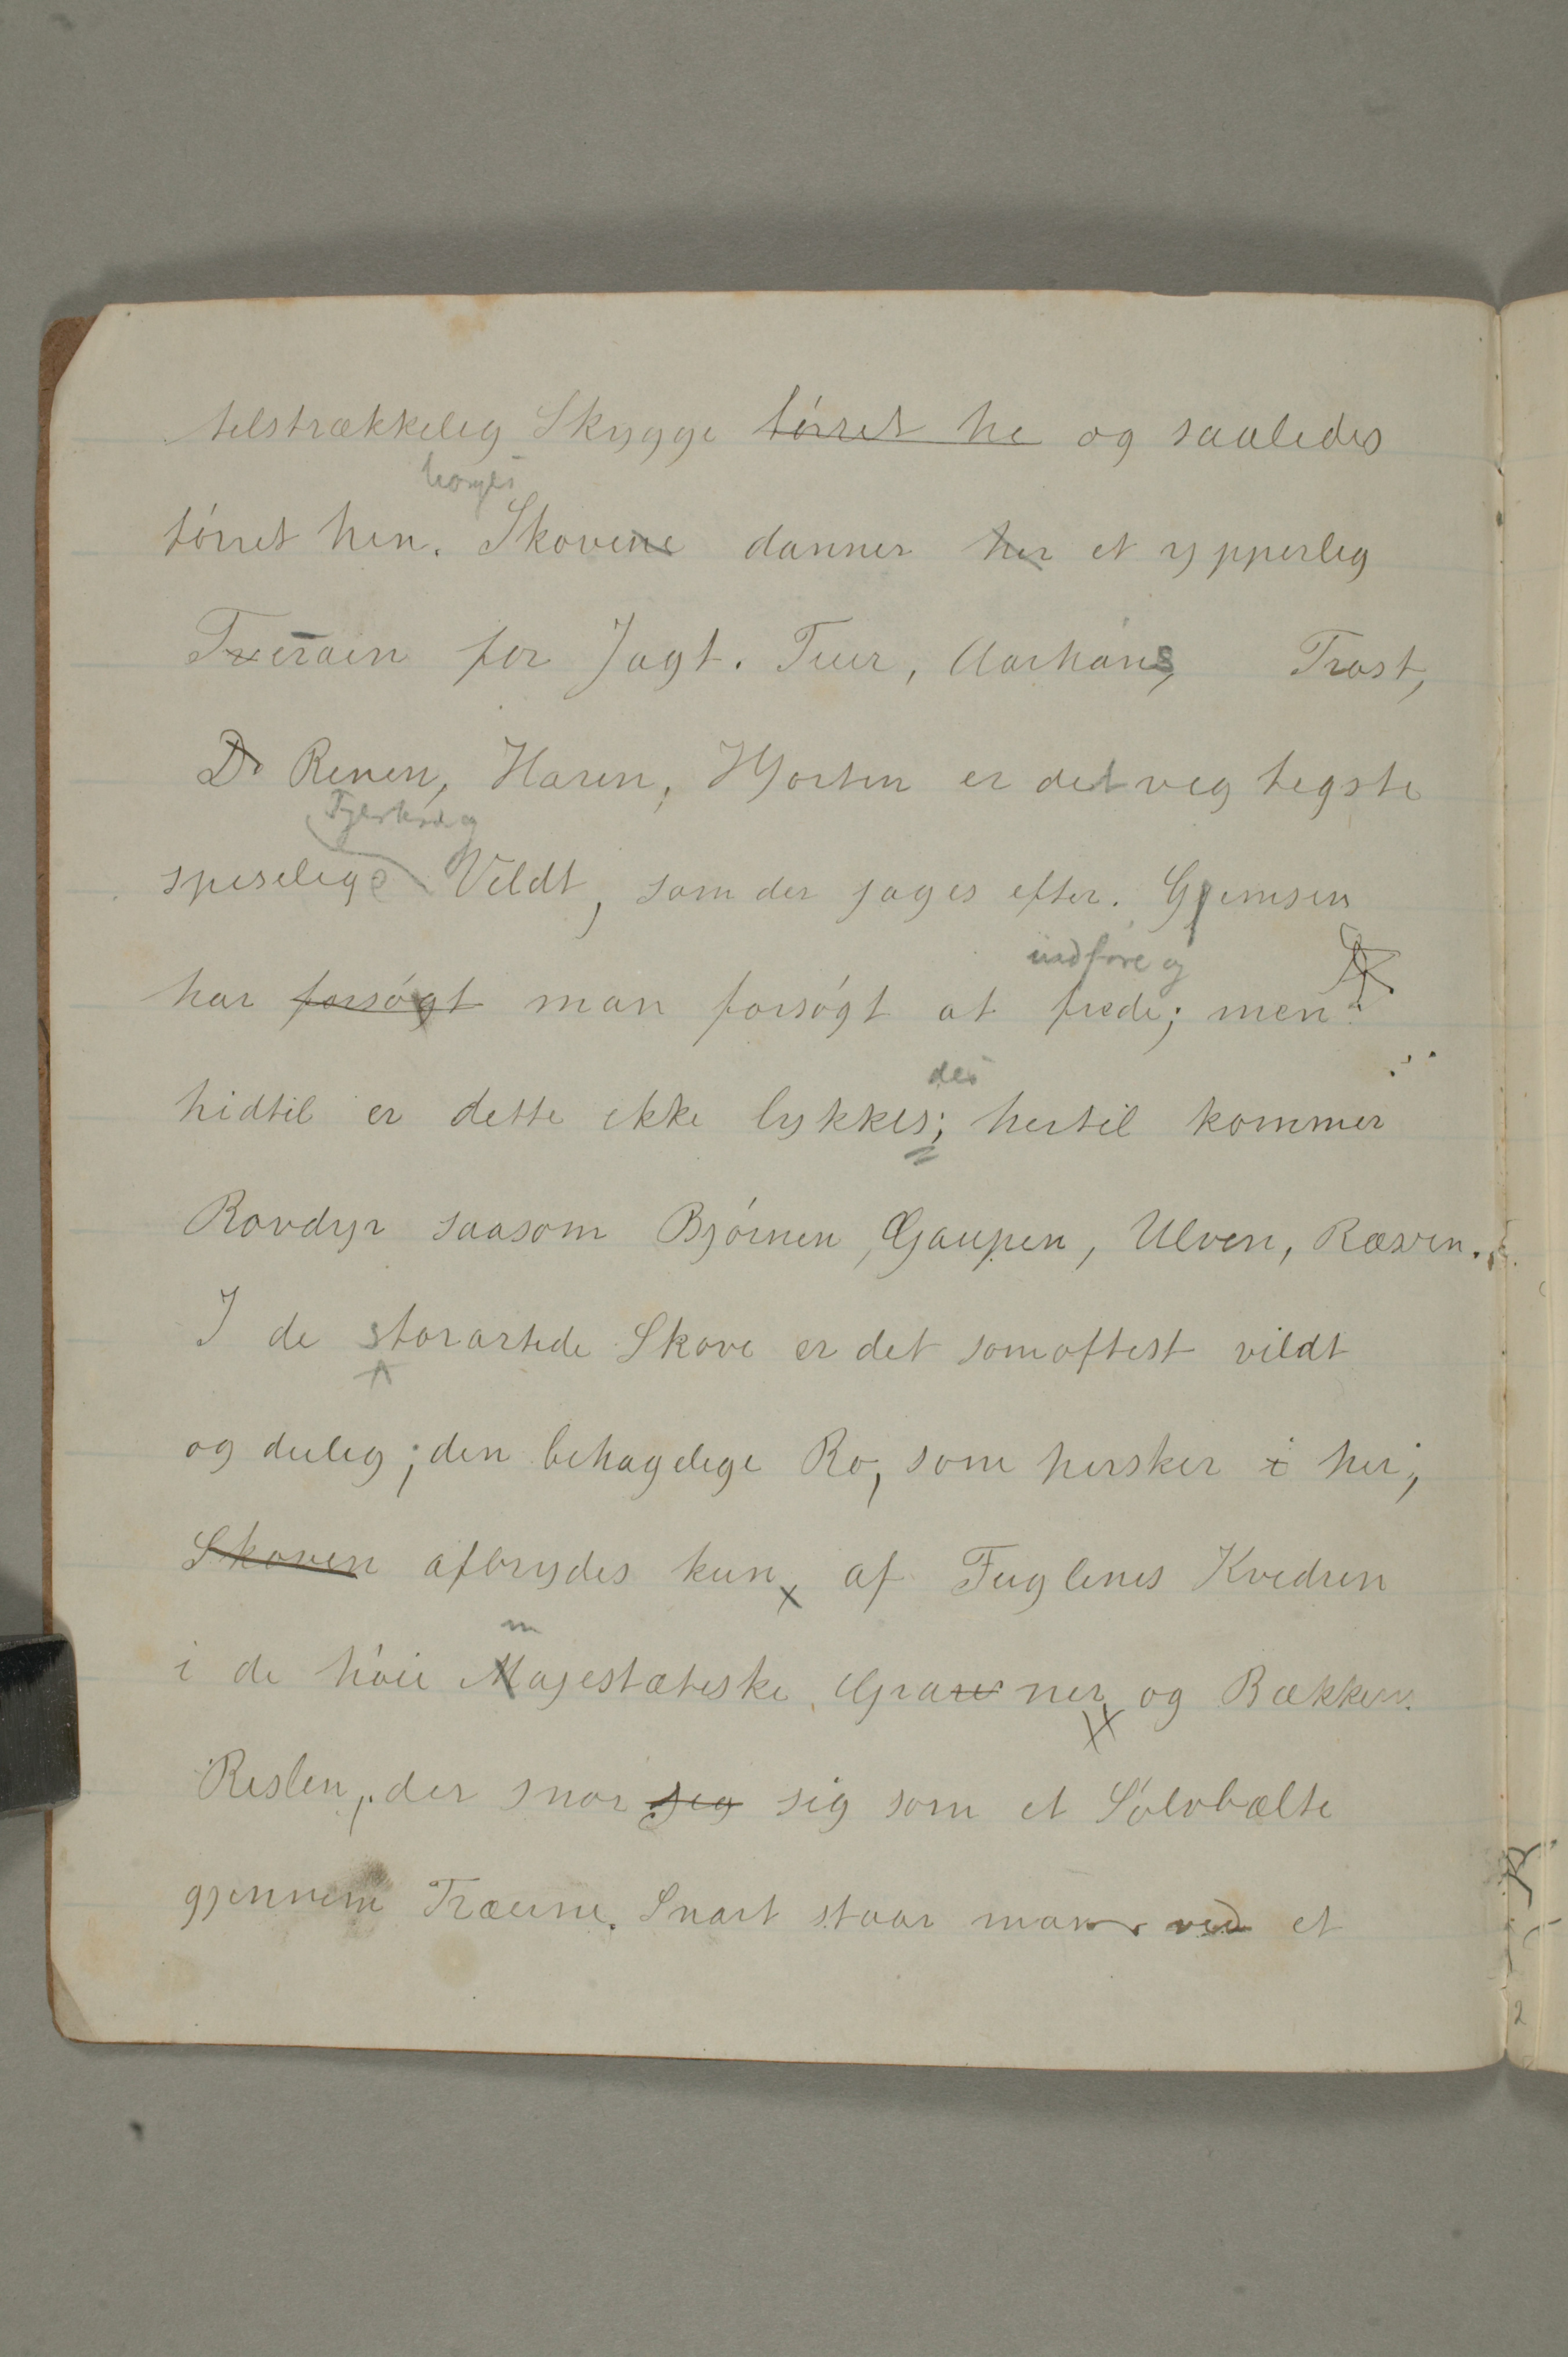 tilstrækkelig Skygge tørret he og saaledes
Norges
tørret hen. Skovene danner her et ypperlig
Terrain for Jagt. Tiur, Aarhane, Trost,
D Renen, Haren, Hjorten er det vigtigste
og
spiselige Vildt, som der jages efter. Gjemsen
indføre og
har forsøgt man forsøgt at frede; men
des
hidtil er dette ikke lykkes; hertil kommer
Rovdyr saasom Bjørnen, Gaupen, Ulven, Ræven.
I de storartede Skove er det somoftest vildt
og deilig; den behagelige Ro, som hersker i her,
Skoven afbrydes kun af Fuglenes Kvidren
m
i de høie Majestætiske Graner og Bækkens
Rislen, der snor sig sig som et Sølvbælte
gjennem Træerne. Snart staar man ved et
2